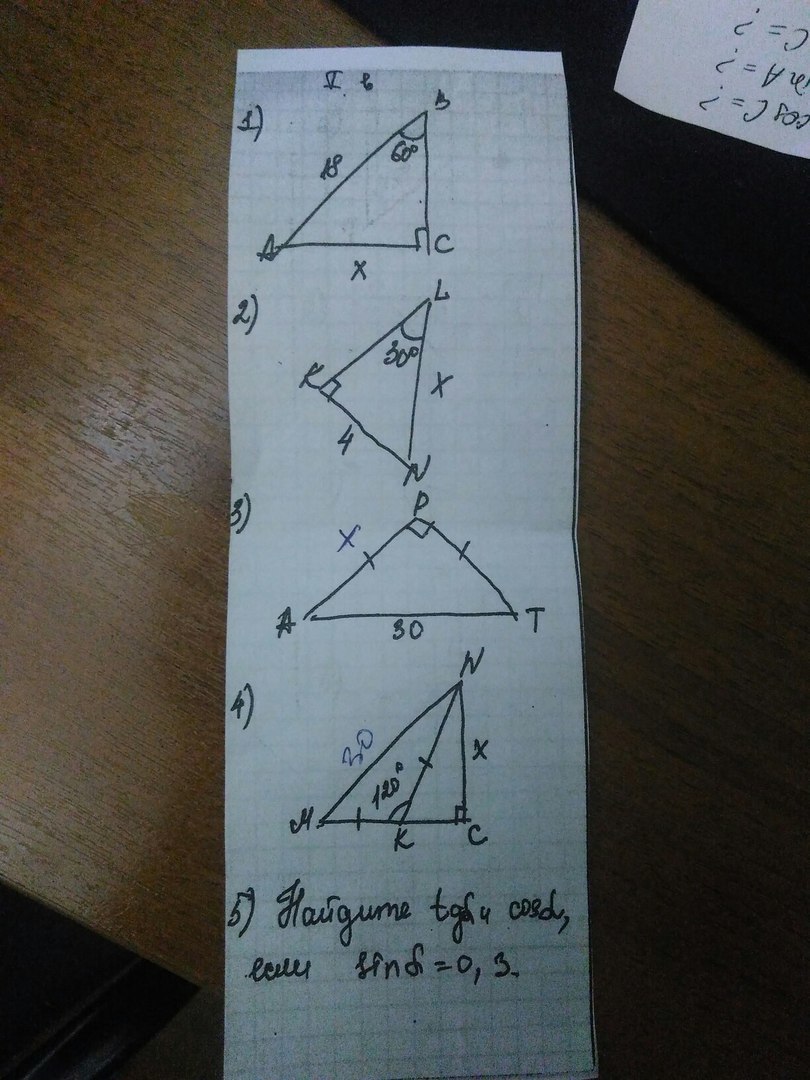 V в
1)
B
60°
18
A
C
x
2)
L
30°
K
x
4
N
3)
P
x
A
30
T
4)
N
30
x
120°
M
K
C
5) Найдите tgα и cosα,
если sinα = 0,3.
C = ?
sin A = ?
cos C = ?